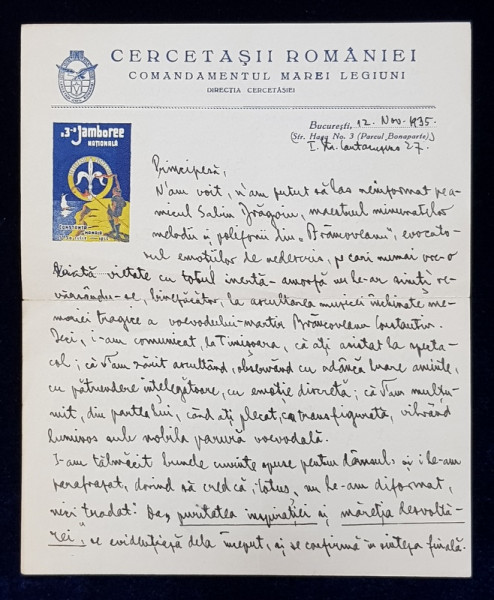 CERCETAȘII ROMÂNIEI
COMANDAMENTUL MAREI LEGIUNI
DIRECȚIA CERCETĂȘIEI
București, 12. Nov. 1935.
(Str. Haga No. 3 (Parcul Bonaparte)
I. Gr. Cantacuzino 27.
a 3-a Jamboree
NAȚIONALĂ
CONSTANȚA
MAMAIA
Principesă,
N'am voit, n'am putut să las neinformat pe a-
micul Sabin Drăgoiu, maestrul minunatelor
melodii și polifonii din „Brâncoveanu", evocato-
rul emoțiilor de nedescris, pe cari numai vre-o
ființă viețate cu totul inertă - amorfă nu le-ar simți re-
vărsându-se, binefăcător, la ascultarea muzicei închinate me-
moriei tragice a voevodului-martir Brâncoveanu Constantin.
Deci, i-am comunicat, la Timișoara, că ați asistat la specta-
col; că V'am zărit ascultând, observând cu adâncă luare aminte,
cu pătrundere înțelegătoare, cu emoție discretă; că V'am mulțu-
mit, din partea lui, când ați plecat, ca transfigurată, vibrând
luminos sub nobila parură voevodală.
I-am tălmăcit bunele cuvinte spuse pentru dânsul și i le-am
parafrazat, dorind să cred că, totuș, nu le-am diformat,
nici trădat: Da, puritatea inspirației și măreția desvoltă-
rei, se evidențiază dela început, și se confirmă în sinteza finală.